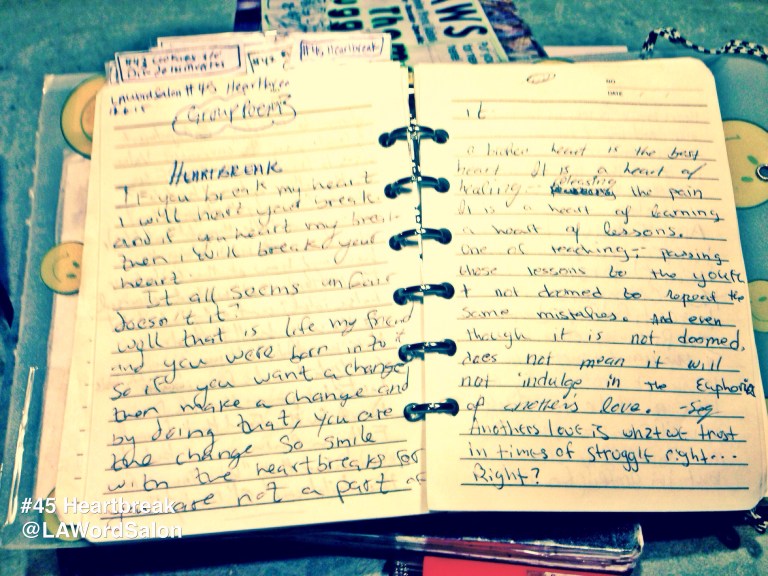 #45 Heartbreak
LAWordSalon #45 Heartbreak
Group Poems
HEARTBREAK
If you break my heart
I will heart your break
and if u heart my break
then i will break your
heart.
It all seems unfair
doesn't it?
well that is life my friend
and you were born into it
So if you want a change
then make a change and
by doing that, you are
the change So smile
with the heartbreaks for
you are not a part of
it.
NO.
DATE
a broken heart is the best
heart It is a heart of
healing - releasing the pain
It is a heart of learning
a heart of lessons.
one of teaching - passing
these lessons to the youth
+ not doomed to repeat the
same mistakes. And even
though it is not doomed,
does not mean it will
not indulge in the Euphoria
of another's love. -Seg
Anothers love is what we trust
in times of struggle right...
Right?
#45 Heartbreak
@LAWordSalon